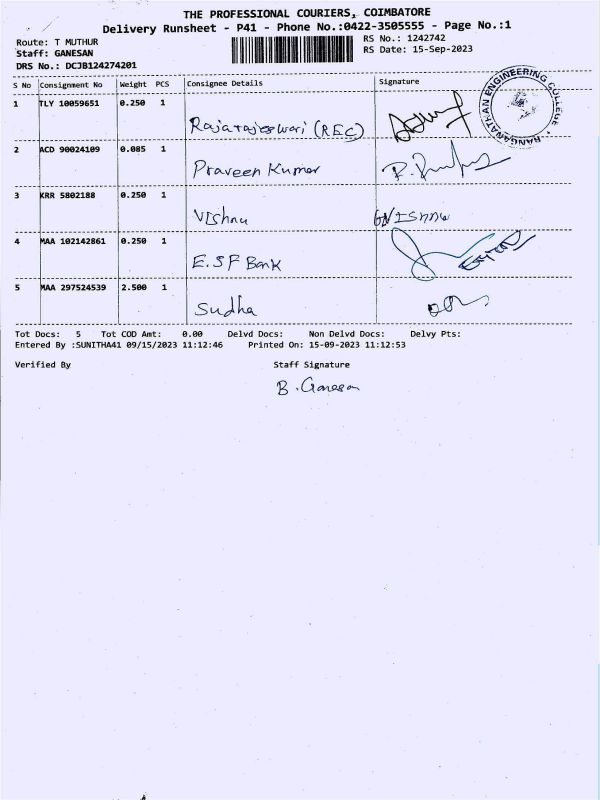 THE PROFESSIONAL COURIERS, COIMBATORE
Delivery Runsheet - P41 - Phone No.:0422-3505555 - Page No.:1
Route: T MUTHUR
Staff: GANESAN
DRS No.: DCJB124274201
RS No.: 1242742
RS Date: 15-Sep-2023
S No Consignment No Weight PCS Consignee Details Signature
1 TLY 10059651 0.250 1 Rajarajeswari (REC)
RANGANATHAN ENGINEERING COLLEGE
2 ACD 90024109 0.085 1 Praveen Kumar
3 KRR 5802188 0.250 1 Vishnu VISHNU
4 MAA 102142861 0.250 1 E.S.F Bank
5 MAA 297524539 2.500 1 Sudha
Tot Docs: 5 Tot COD Amt: 0.00 Delvd Docs: Non Delvd Docs: Delvy Pts:
Entered By :SUNITHA41 09/15/2023 11:12:46 Printed On: 15-09-2023 11:12:53
Verified By Staff Signature
B. Ganesan